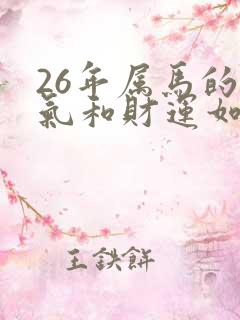 26年属馬的
氣和財運如
王鉄餅